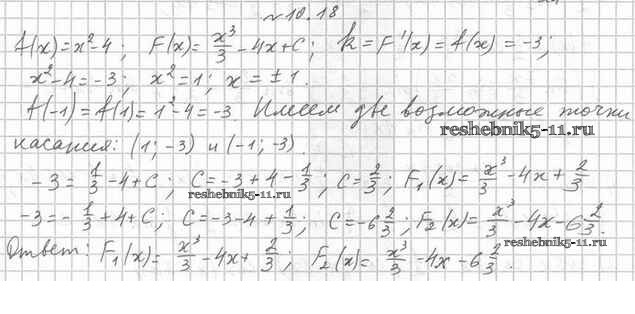 №10.18
f(x)=x²-4; F(x)=x³/3-4x+C; k=F'(x)=f(x)=-3;
x²-4=-3; x²=1; x=±1.
f(-1)=f(1)=1²-4=-3. Имеем две возможные точки
reshebnik5-11.ru
касания: (1;-3) и (-1;-3).
-3=1/3-4+C; C=-3+4-1/3; C=2/3; F₁(x)=x³/3-4x+2/3
reshebnik5-11.ru
-3=-1/3+4+C; C=-3-4+1/3; C=-6 2/3; F₂(x)=x³/3-4x-6 2/3.
reshebnik5-11.ru
Ответ: F₁(x)=x³/3-4x+2/3; F₂(x)=x³/3-4x-6 2/3.